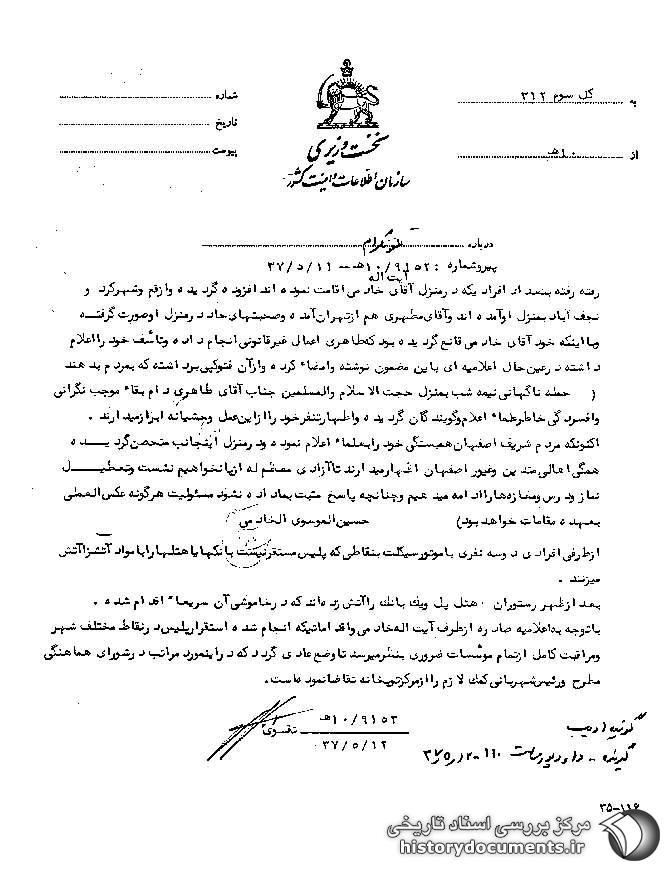 شماره
تاریخ
پیوست
نخست وزیری
سازمان اطلاعات و امنیت کشور
به کل سوم ۳۱۲
از ۱۰ هـ
درباره تلفنگرام
پیرو شماره : ۱۰/۹۱۵۲هـ - ۳۷/۵/۱۱
آیت اله
رفته رفته بتعداد افرادیکه در منزل آقای خادمی اقامت نموده اند افزوده گردیده و از قم و شهرکرد و
نجف آباد بمنزل او آمده اند و آقای مطهری هم از تهران آمده و صحبتهای حاد در منزل او صورت گرفته
و با اینکه خود آقای خادمی قانع گردیده بود که طاهری اعمالی غیرقانونی انجام داده و تأسف خود را اعلام
داشته در عین حال اعلامیه ای باین مضمون نوشته و امضاء کرده و از آن فتوکپی برداشته که بمردم بدهند
( حمله ناگهانی نیمه شب بمنزل حجت الاسلام والمسلمین جناب آقای طاهری دام بقاء موجب نگرانی
و افسردگی خاطر علماء اعلام و گویندگان گردیده و اظهار تنفر خود را از این عمل وحشیانه ابراز میدارند .
اکنونکه مردم شریف اصفهان همبستگی خود را بعلماء اعلام نموده و در منزل اینجانب متحصن گردیده
همگی اهالی متدین و غیور اصفهان اظهار میدارند تا آزادی معظم له از پا نخواهیم نشست و تعطیل
نماز و درس و مغازه ها را ادامه میدهیم و چنانچه پاسخ مثبت بما داده نشود مسئولیت هرگونه عکس العملی
بعهده مقامات خواهد بود) حسین الموسوی الخادمی
از طرفی افرادی دو سه نفری با موتورسیکلت بنقاطی که پلیس مستقر نیست بانکها یا هتلها را با مواد آتشزا آتش
میزنند .
بعد از ظهر رستوران هتل پل و یک بانک را آتش زده اند که در خاموشی آن سریعاً اقدام شده .
با توجه به اعلامیه صادره از طرف آیت اله خادمی و اقداماتیکه انجام شده استقرار پلیس در نقاط مختلف شهر
و مراقبت کامل از تمام مؤسسات ضروری بنظر میرسد تا وضع عادی گردد که در اینمورد مراتب در شورای هماهنگی
مطرح و رئیس شهربانی کمک لازم را از مرکز توپخانه تقاضا نموده است.
۱۰/۹۱۵۳هـ
تقوی
۳۷/۵/۱۲
گوینده ادیب
گیرنده - ساعت
۳۵-۱۱۶
مرکز بررسی اسناد تاریخی
historydocuments.ir